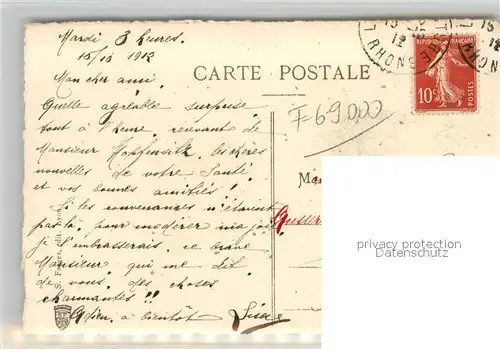 Mardi 3 heures.
15/10 1912
CARTE POSTALE
F-69000
Mon cher ami.
Quelle agréable surprise
tout à l'heure, revenant de
Monsieur
nouvelles de votre santé
et vos bonnes amitiés!
Si les convenances n'étaient
pas là, pour modérer ma joie
je l'embrasserais, ce brave
Monsieur qui me dit
de vous, des choses
charmantes!!
Adieu, à bientôt
RHONE
REPUBLIQUE FRANÇAISE
10c
POSTES
M
privacy protection
Datenschutz